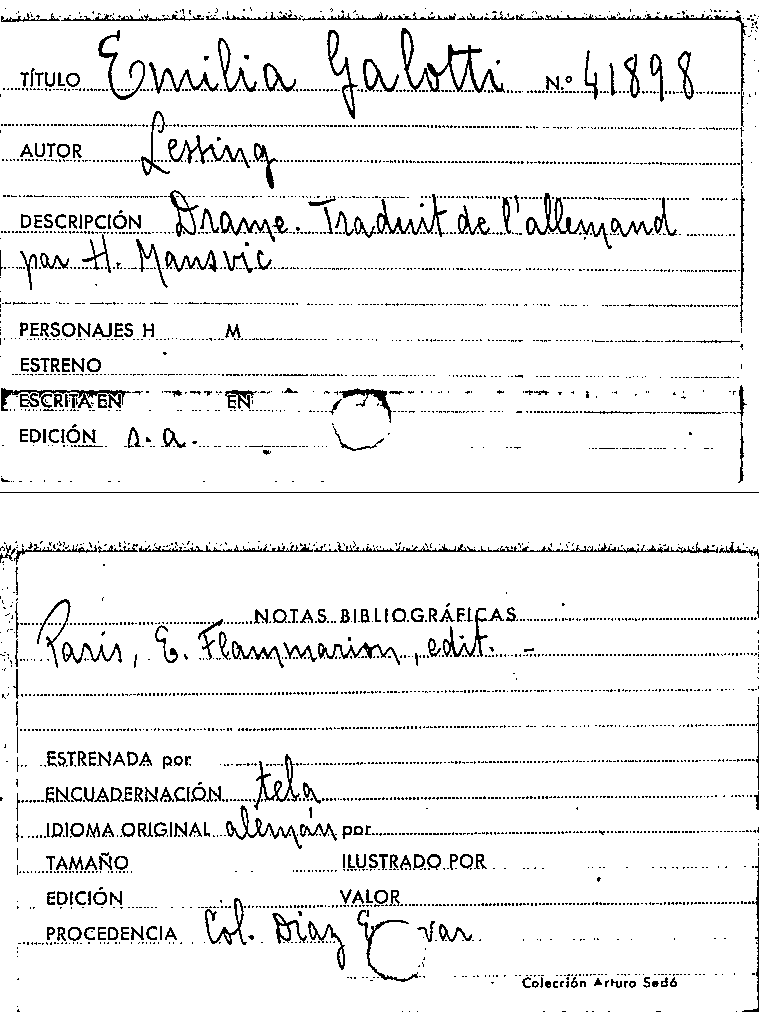 TÍTULO Emilia Galotti N.º 41898
AUTOR Lessing
DESCRIPCIÓN Drame. Traduit de l'allemand
par H. Mansvic
PERSONAJES H M
ESTRENO
ESCRITA EN EN
EDICIÓN s.a.
NOTAS BIBLIOGRÁFICAS
Paris, E. Flammarion, edit. -
ESTRENADA por
ENCUADERNACIÓN tela
IDIOMA ORIGINAL alemán por
TAMAÑO ILUSTRADO POR
EDICIÓN VALOR
PROCEDENCIA Col. Díaz
Colección Arturo Sedó